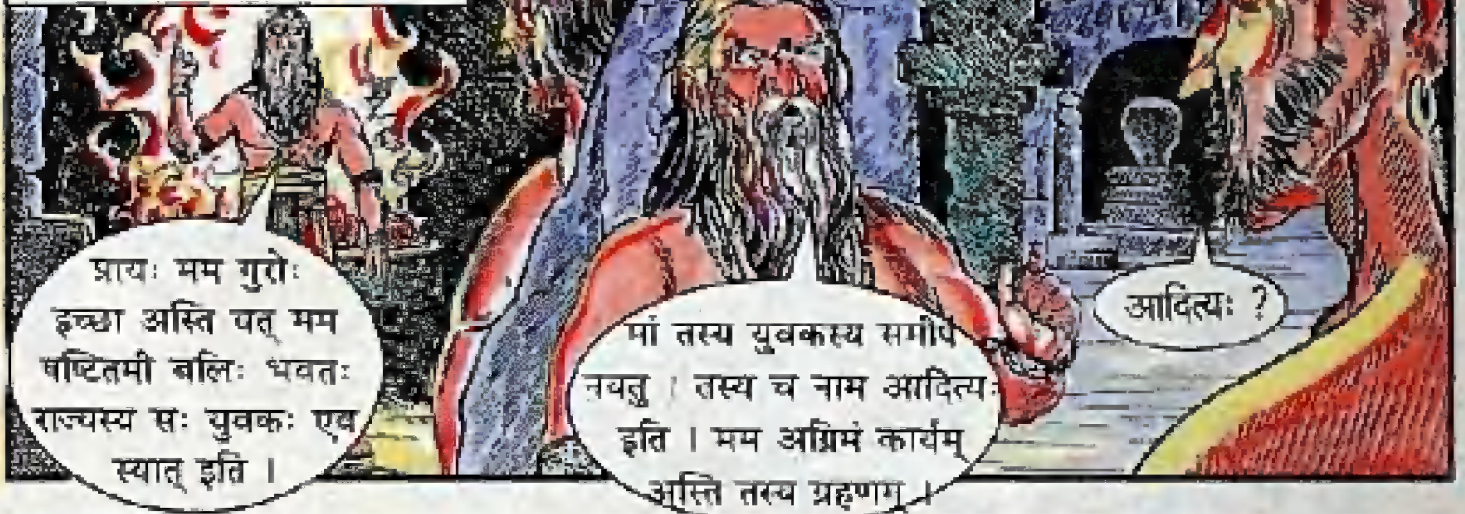 प्रायः मम गुरोः
इच्छा अस्ति यत् मम
षष्टितमी बलिः भवतः
राज्यस्य सः युवकः एव
स्यात् इति ।
मां तस्य युवकस्य समीपे
नयतु । तस्य च नाम आदित्यः
इति । मम अग्रिमं कार्यम्
अस्ति तस्य ग्रहणम् ।
आदित्यः ?